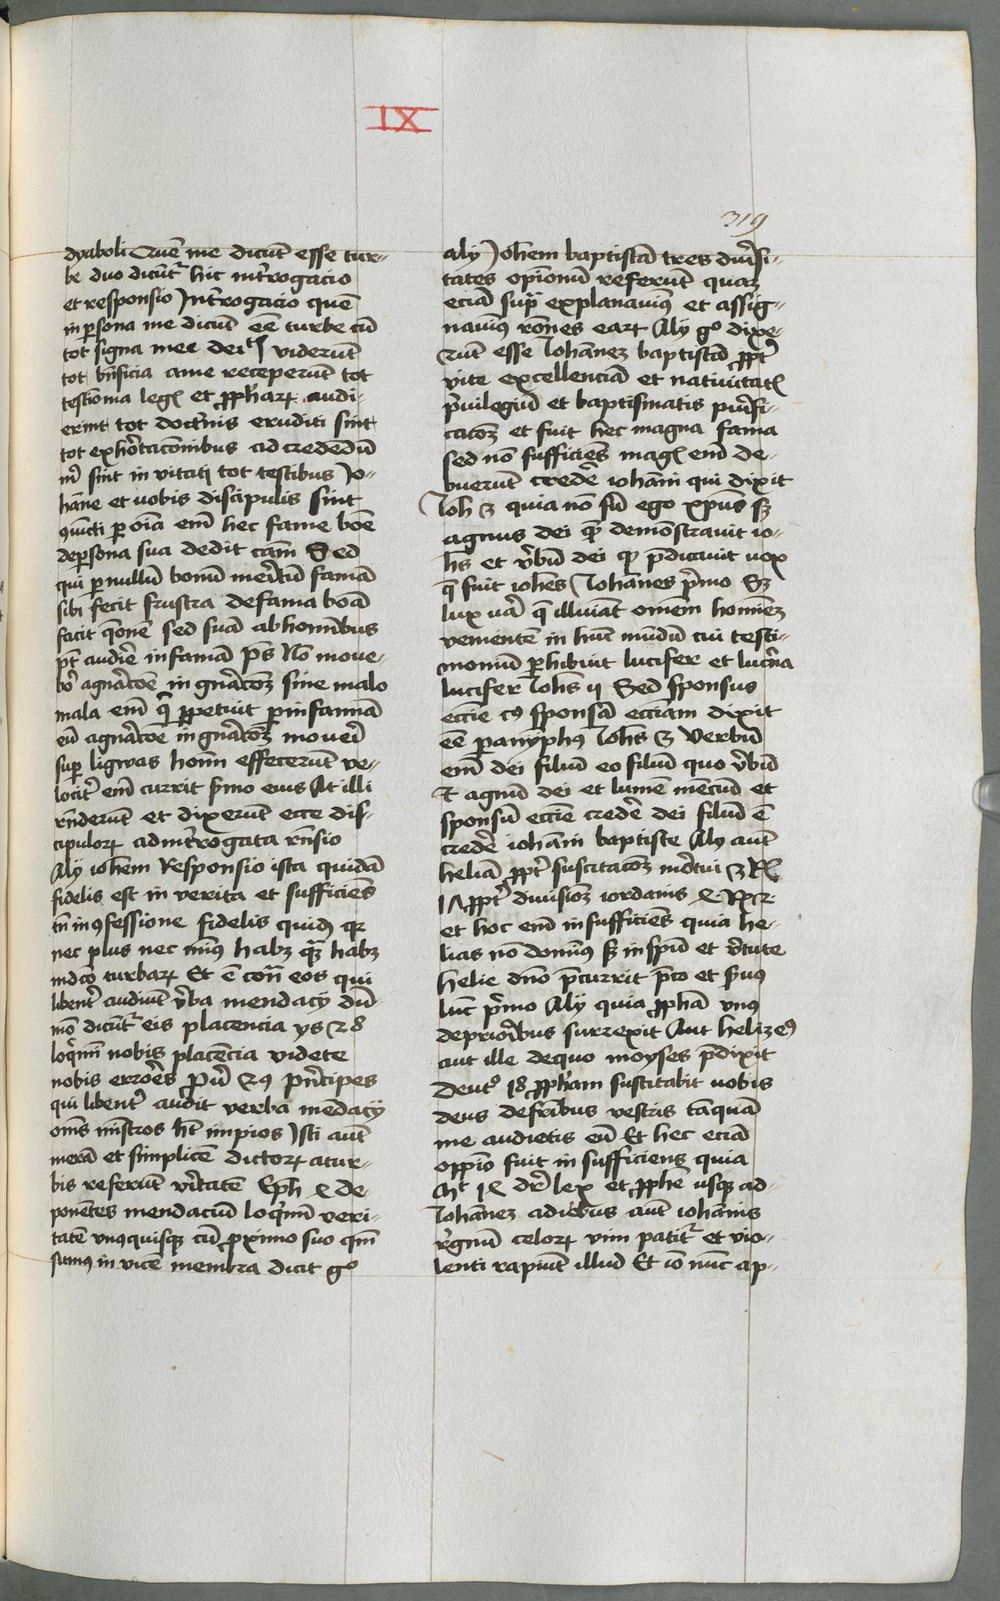 IX
319
dyaboli Quē me dicūt esse tur-
be duo dicūtʳ hic int̄rogacio
et responsio Int̄rogacio quē
in ꝑsona me dicūt eē turbe cū
tot signa mee deitꝭ viderūt
tot bn̄ficia a me receperūt tot
testīonia legꝭ et ꝓphaꝝ audi-
erint tot doct̄nis eruditi sint
tot exhōtacōnibus ad credēdū
m̄ sint invitati tot testibus Jo-
hāne et vobis discipulis sint
9uicti ꝑ oīa em̄ hec fame boē
de ꝑsona sua dedit cām Sed
qui ꝑ nullū bonū meritū famā
sibi fecit frustra de fama boā
facit q̄onē sed suā ab homībus
pt̄ audire infamā ps̄ Nō moue-
bor a gnāc̄oē in gnāc̄oꝫ sine malo
mala em̄ q̄ ꝑpetuit ꝑ infamiā
eū a gnāc̄oe in gnāc̄oꝫ moueri
suꝑ ligwas hoīm effecerūt ve-
locit̄ em̄ currit smo eius At illi
rn̄derūt et dixerūt ecce dis-
cipuloꝝ ad int̄rogata rn̄sio
Aly ioh̄em Responsio ista quidā
fidelis est in verita et sufficiēs
tn̄ in 9fessione fidelis quidē qꝛ
nec plus nec min9 habꝫ qꝫ habꝫ
iudicō turbaꝝ Et ē cont̄ eos qui
libent̄ audiūt v̄ba mendacy dū-
mō dicūtʳ eis placencia ys 28
loqm̄ī nobis placēcia videte
nobis errōes ꝓu 29 prīcipes
qui libent̄ audit verba mēdacy
om̄s mīstros ht̄ impios Isti aūt
merā et simplicē dictoꝝ a tur-
bis referūt v̄itatē Eph 4 de-
ponētes mendaciū loqm̄ī veri-
tatē vn9quisqꝫ cū ꝓximo suo qm̄
sum9 invicē membra dicit g°
aly Joh̄em baptistā tres diu̇si-
tates opīonū referūt quas
eciā sup̄ explanauim9 et assig-
nauim9 rōnes eaꝝ Aly g° dixe-
rūt esse Johānez baptistā ꝓpt̄
vite excellenciā et natiuitatꝭ
p̄uilegiū et baptismatis purifi-
cacōꝫ et fuit hec magna fama
sed nō sufficiēs magꝭ em̄ de-
buerūt crede̅ iohāni qui dixit
Joh 3 quia nō sū ego xp̄us sꝫ
agnus dei quē demōstrauit io-
h̄s et v̄bū dei qd̄ p̄dicauit vox
q̄ fuit ioh̄es Johānes p̄mo Sꝫ
lux v̄a q̄ illuīat om̄em homīeꝫ
venientē in hūc mūdū cui testi-
moniū ꝑhibuit lucifer et lucna
lucifer Joh̄s ij Sed sponsus
eccīe c9 sponsā ecciam dixit
eē paranymph9 Joh̄s 3 Verbū
em̄ dei filiū eo filiū quo v̄bū
et agnū dei et lumē mēciū et
sponsū eccīe crede̅ dei filiū ē
crede̅ iohāni baptiste Aly aūt
heliā ꝓpt̄ suscitacōꝫ mōtui 3 Rꝭ
17 ꝓpt̄ diuisiōꝫ iordanis 4 Rꝭ 2
et hoc em̄ insufficiēs quia he-
lias nō domin9 sꝫ in spū et v̄tute
helie dn̄o p̄currit p̄co et p̄ui9
luc p̄mo Aly quia ꝓphā vn9
de priorībus surrexit Aut helize9
aut ille de quo moyses p̄dixit
Deut° 18 ꝓpham suscitabit vobis
deus de fr̄ibus vestris tāquā
me audietis eū Et hec eciā
oppīo fuit insufficiens quia
Mt̄ 11 dr̄ lex et ꝓphe usqꝫ ad
Johānez a diebus aūt iohānis
regnū celoꝝ vim patitʳ et vio-
lenti rapiūt illud Et iō nūc ap-